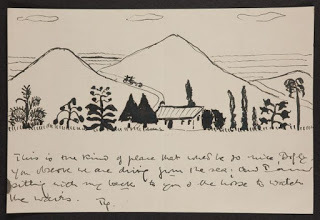 This is the kind of place that would be so nice, Diffy
you observe we are driving from the sea; and I am
sitting with my back to you & the horse to watch
the waves.